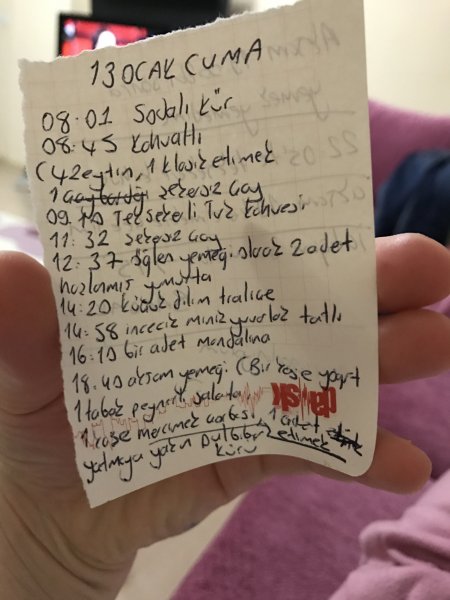 13 OCAK CUMA
08.01 Sodalı kür
08:45 Kahvaltı
(42eytin, 1 klasik etimek
1 şekersiz çay
09 Tek şekerli Türk kahvesi
11:32 şekersiz çay
12:37 öğlen yemeği olarak 2 adet
haşlanmış yumurta
14:20 küçük dilim traliçe
14:58 incecik miniz yuvarlak tatlı
16:10 bir adet mandalina
18:40 akşam yemeği (Bir kase yoğurt
1 tabak peynirli salata
1 kase mercimek çorbası, 1 adet
etimek
yatmaya yakın Dulbiber
kürü